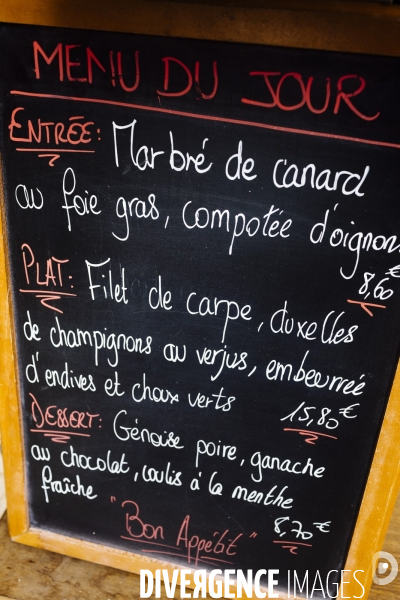 MENU DU JOUR
ENTRÉE: Marbré de canard
au foie gras, compotée d'oignon
8,60€
PLAT: Filet de carpe, duxelles
de champignons au verjus, embeurrée
d'endives et choux verts 15,80€
DESSERT: Génoise poire, ganache
au chocolat, coulis à la menthe
fraîche 8,70€
"Bon Appétit"
DIVERGENCE IMAGES